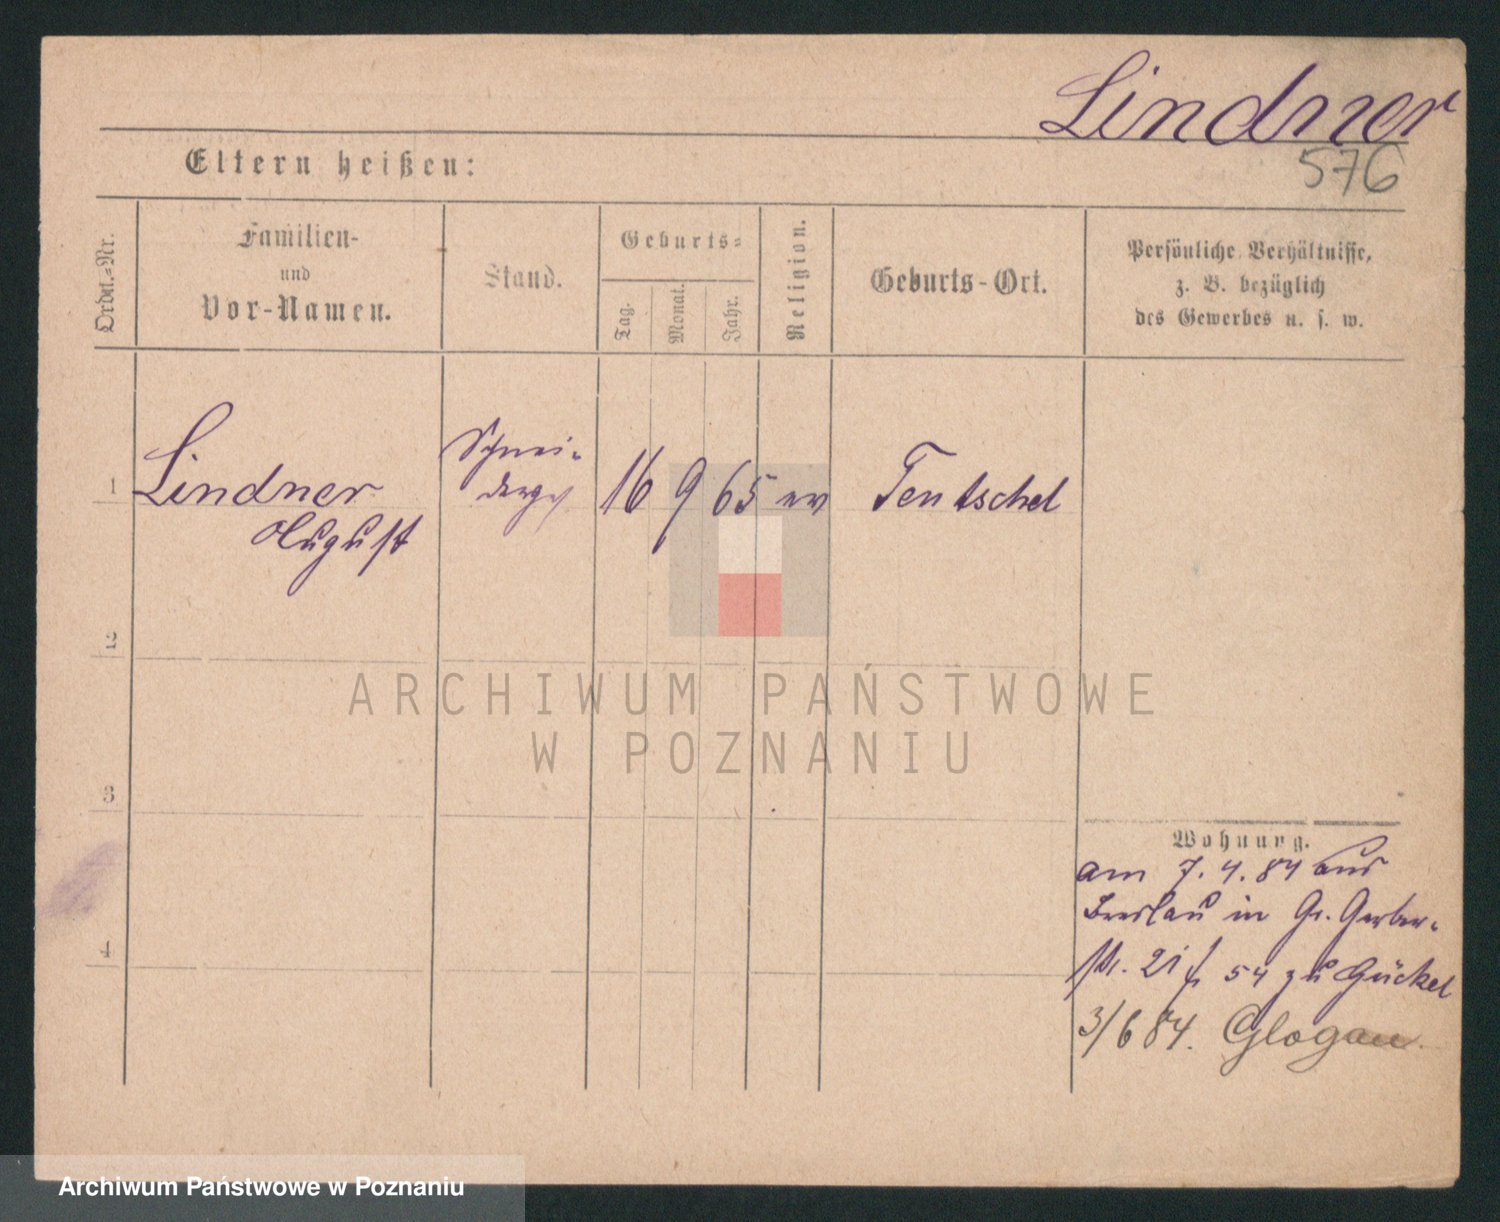 Lindner
576
Eltern heißen:
Ordn.-Nr.
Familien-
und
Vor-Namen.
Stand.
Geburts-
Tag.
Monat.
Jahr.
Religion.
Geburts-Ort.
Persönliche Verhältnisse,
z. B. bezüglich
des Gewerbes u. s. w.
1
Lindner
August
Schnei-
derges
16 9 65 ev
Teutschel
2
3
4
Wohnung.
am 7. 4. 84 aus
Breslau in Gr. Gerber-
str. 21 54 zu Gückel
3/6 84. Glogau.
ARCHIWUM PAŃSTWOWE
W POZNANIU
Archiwum Państwowe w Poznaniu